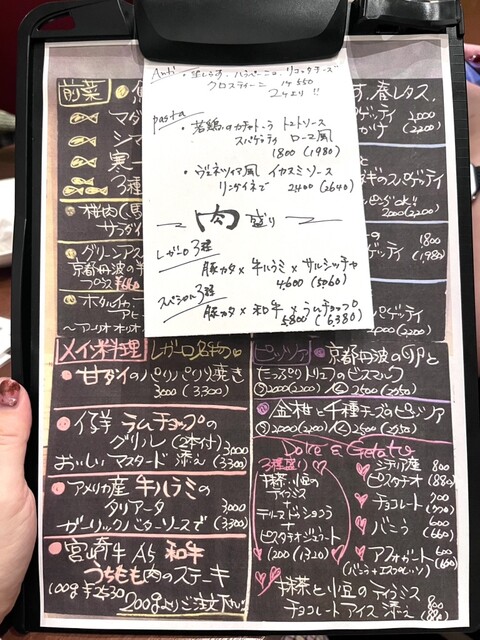 Anti・生しらす、ハラペーニョ、リコッタチーズ
クロスティーニ 1ヶ550
2ヶより!!
pasta
・若鶏のカチャトーラ トマトソース
スパゲッティ ローマ風
1800 (1980)
・ヴェネツィア風 イカスミソース
リングイネで 2400 (2640)
肉盛り
レガーロ3種
豚カタ×牛ハラミ×サルシッチャ
4,600 (5060)
スペシャル3種
豚カタ×和牛×ラムチョップ
5,800 (6,380)
前菜
マダ
シマ
寒
3種
桜肉(馬
サラダ
グリーンアス
京都丹波の
プラス ¥660
ホタルイカ
アヒ
〜アーリオオリオ
春レタス
ゲッティ 2,000
がけ (2,200)
ギのスパゲッティ
ok!!
2000 (2200)
1800
ゲッティ (1,980)
パゲティ
2000 (2200)
メイン料理 レガーロ名物の
甘ダイのパリパリ焼き
3000 (3300)
仔羊 ラムチョップの
グリル (2本付) 3000
おいしいマスタード添え (3300)
アメリカ産 牛ハラミの
タリアータ 3000
ガーリックバターソースで (3300)
宮崎牛 A5 和牛
うちもも肉のステーキ
100g ¥2530
200gよりご注文下さい
ピッツァ 京都丹波の卵と
たっぷりトリュフのビスマルク
S 2000 (2200) L 2500 (2750)
金柑と千種チーズのピッツァ
S 2000 (2200) L 2500 (2750)
Dolce & Gelato
3種盛り
抹茶と小豆の
ティラミス
+
テリーヌドショコラ
+
ピスタチオジェラート
1200 (1,320)
シチリア産 800
ピスタチオ (880)
チョコラート 700
(770)
バニラ 600
(660)
アフォガート 600
(バニラ+エスプレッソ) (660)
抹茶と小豆のティラミス
チョコラートアイス添え 800
(880)